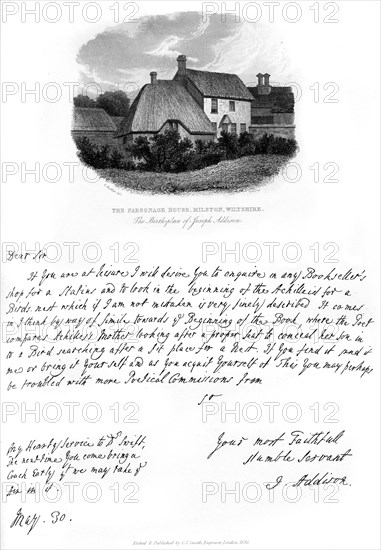 THE PARSONAGE HOUSE, MILSTON, WILTSHIRE.
The Birthplace of Joseph Addison.
Dear Sir
If You are at leisure I will desire You to enquire in any Bookseller's
shop for a Statius and to look in the beginning of the Achilleis for a
Birds nest which if I am not mistaken is very finely described. It comes
in I think by way of Simile towards ye Beginning of the Book, where the Poet
compares Achilles's Mother looking after a proper Seat to conceal her Son in
to a Bird searching after a fit place for a Nest. If You find it send it
me or bring it Yourself and as you acquit Yourself of This You may perhaps
be troubled with more Poetical Commissions from
Sr
Your most Faithfull
Humble Servant
J. Addison.
My Hearty Service to Dr Swift,
The next time You come bring a
Coach Early yt we may take ye
in it.
May. 30.
PHOTO12